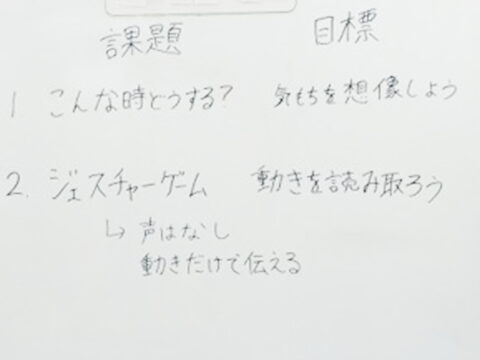 課題 目標
1 こんな時どうする? 気もちを想像しよう
2. ジェスチャーゲーム 動きを読み取ろう
↳ 声はなし
動きだけで伝える